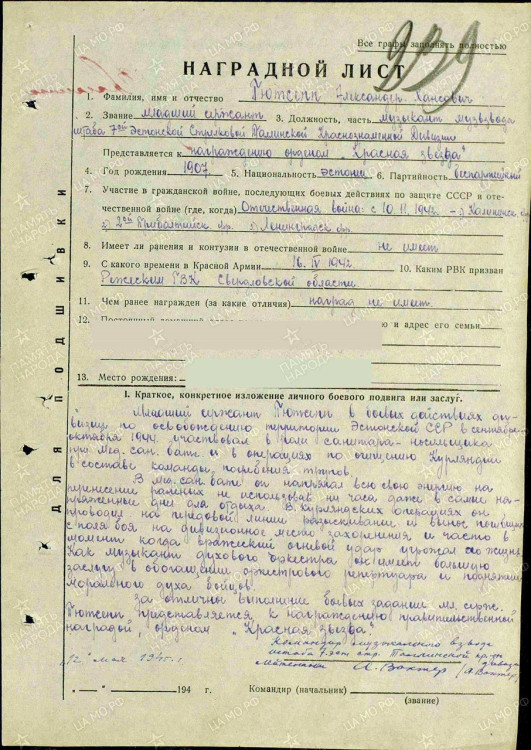 Все графы заполнять полностью
939
НАГРАДНОЙ ЛИСТ
1. Фамилия, имя и отчество Тютсепп Александр Хансович
2. Звание младший сержант 3. Должность, часть музыкант музвзвода
штаба 7ой Эстонской Стрелковой Талинской Краснознаменой Дивизии
Представляется к награждению орденом „Красная звезда"
4. Год рождения 1907 5. Национальность эстонец 6. Партийность беспартийный
7. Участие в гражданской войне, последующих боевых действиях по защите СССР и оте-
чественной войне (где, когда) Отечественная война: с 10.11.1942 – Калининск.
2ой Прибалтийск. фр. Ленинградск. фр.
8. Имеет ли ранения и контузии в отечественной войне не имеет
9. С какого времени в Красной Армии 16.IV 1942 10. Каким РВК призван
Режевским РВК Свердловской области
11. Чем ранее награжден (за какие отличия) наград не имеет.
12. Постоянный ю и адрес его семьи
13. Место рождения:
I. Краткое, конкретное изложение личного боевого подвига или заслуг.
Младший сержант Тютсепп в боевых действиях ди-
визии по освобождению территории Эстонской ССР в сентябре-
октябре 1944. участвовал в роли санитара-носильщика
при Мед. сан. бате и в операциях по очищению Курляндии
в составе команды погребения трупов.
В мед. сан. бате он напрягал всю свою энергию на
перенесении раненых не использовав ни часа даже в самые на-
пряженные дни для отдыха. В Курляндских операциях он
проводил на передовой линии разыскивание и вынос погибших
с поля боя на дивизионное место захоронения и часто в
момент когда вражеский огневой удар угрожал его жизни.
Как музыкант духового оркестра он имеет большую
заслугу в обогащении оркестрового репертуара и поднятии
морального духа бойцов.
За отличное выполнение боевых заданий мл. серж.
Тютсепп представляется к награждению правительственной
наградой, орденом „Красная звезда".
Командир музыкального взвода
штаба 7. эст. стр. Таллинской кразн. дивизии
„12" мая 1945 г. лейтенант А. Вахтер /А. Вахтер/
„ " 194 г. Командир (начальник)
(звание)
ДЛЯ ПОДШИВКИ
ПАМЯТЬ НАРОДА
ЦАМО.РФ